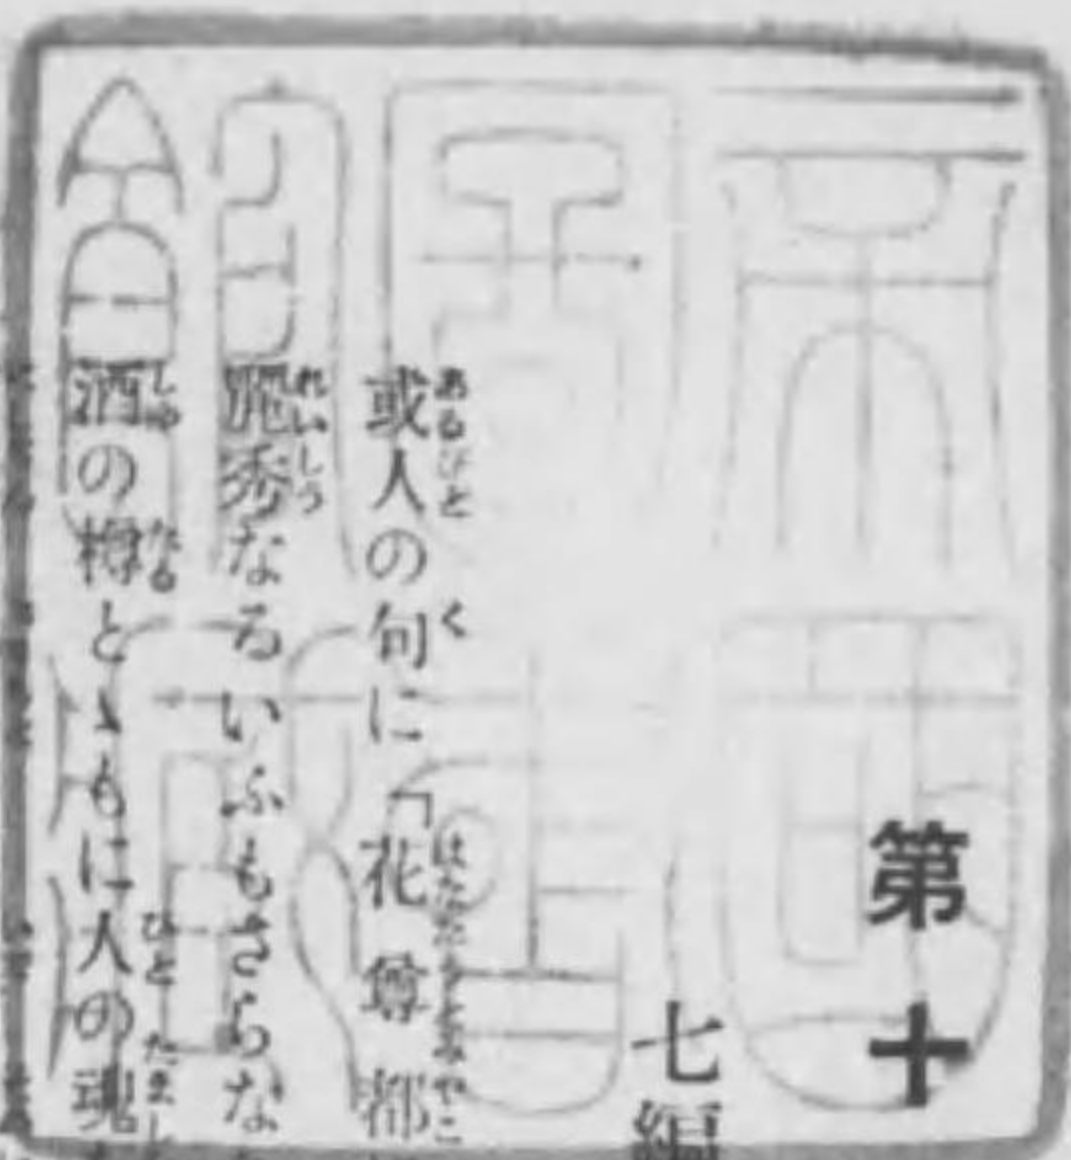 帝國
圖書
館藏
第十
七編
或人の句に「花尊都
麗秀なるいふもさらな
酒の樽とゝもに人の魂